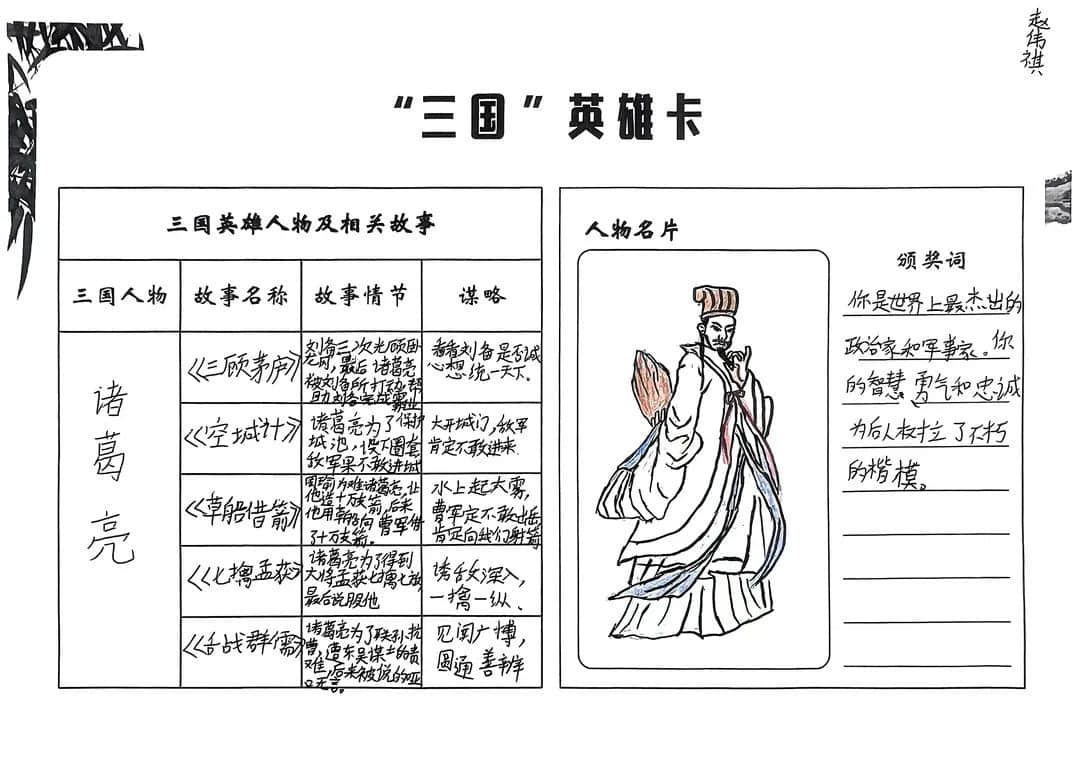 赵伟祺
“三国”英雄卡
三国英雄人物及相关故事
三国人物
故事名称
故事情节
谋略
诸葛亮
《三顾茅庐》
刘备三次光顾卧
龙岗,最后诸葛亮
被刘备所打动,帮
助刘备完成霸业
看看刘备是否诚
心想统一天下。
《空城计》
诸葛亮为了保护
城池,设下圈套
敌军果不敢进城
大开城门,敌军
肯定不敢进来.
《草船借箭》
周瑜为难诸葛亮,让
他造十万支箭,后来
他用草船向曹军借
了十万支箭。
水上起大雾,
曹军定不敢出兵
肯定向我们射箭
《七擒孟获》
诸葛亮为了得到
大将孟获七擒七放
最后说服他
诱敌深入,
一擒一纵、
《舌战群儒》
诸葛亮为了联孙抗
曹,遭东吴谋士的责
难,后来被说的哑
口无言。
见闻广博,
圆通善辨
人物名片
颁奖词
你是世界上最杰出的
政治家和军事家。你
的智慧、勇气和忠诚
为后人树立了不朽
的楷模。